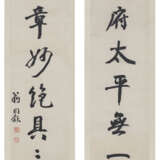 府太平無一
章妙絕具
翁同龢